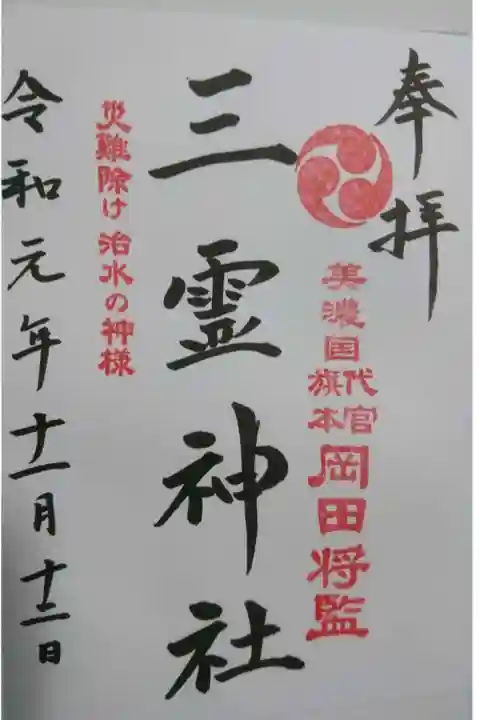 奉拝
美濃国
代官
旗本
岡田将監
三霊神社
災難除け 治水の神様
令和元年十一月十三日